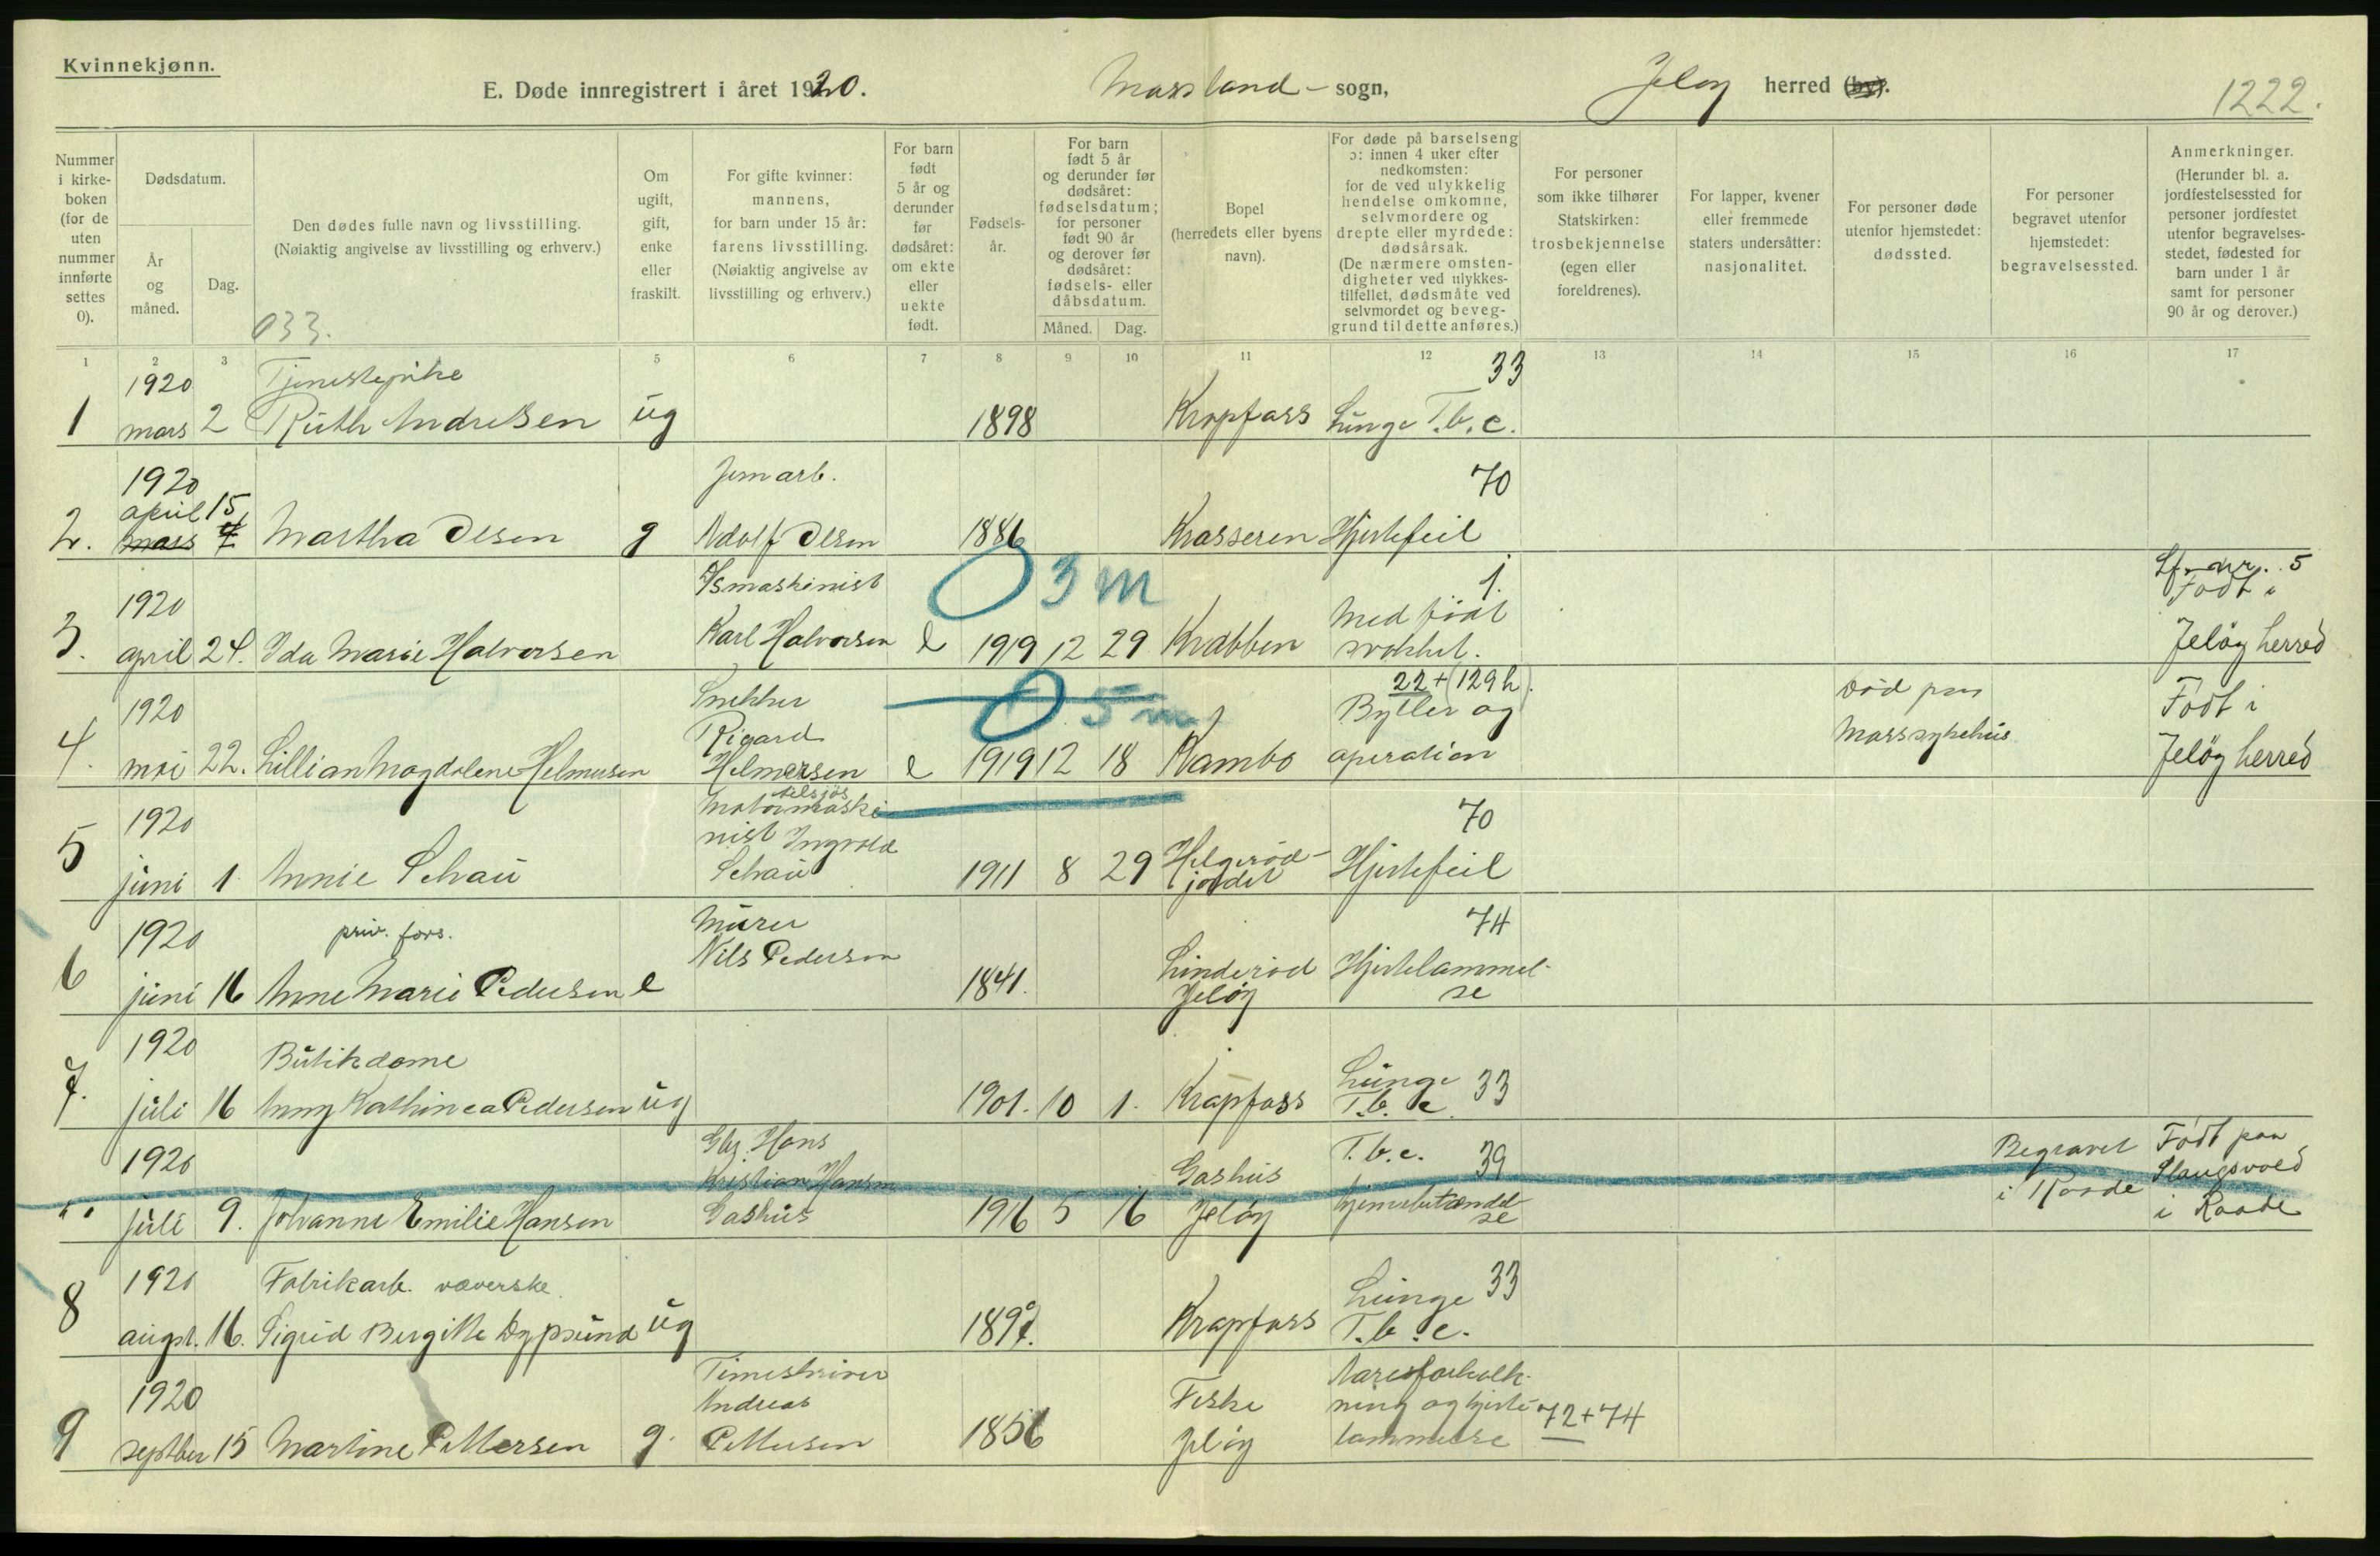 Kvinnekjønn.
E. Døde innregistrert i året 1920. Mossland - sogn, Jeløy herred (by). 1222.
Nummer i kirke- boken (for de uten nummer innførte settes 0).
Dødsdatum.
År og måned.
Dag.
Den dødes fulle navn og livsstilling.
(Nøiaktig angivelse av livsstilling og erhverv.)
033.
Om ugift, gift, enke eller fraskilt.
For gifte kvinner: mannens, for barn under 15 år: farens livsstilling. (Nøiaktig angivelse av livsstilling og erhverv.)
For barn født 5 år og derunder før dødsåret: om ekte eller uekte født.
Fødsels- år.
For barn født 5 år og derunder før dødsåret: fødselsdatum; for personer født 90 år og derover før dødsåret: fødsels- eller dåbsdatum.
Måned. Dag.
Bopel (herredets eller byens navn).
For døde på barselseng ɔ: innen 4 uker efter nedkomsten: for de ved ulykkelig hendelse omkomne, selvmordere og drepte eller myrdede: dødsårsak. (De nærmere omsten- digheter ved ulykkes- tilfellet, dødsmåte ved selvmordet og beveg- grund til dette anføres.)
For personer som ikke tilhører Statskirken: trosbekjennelse (egen eller foreldrenes).
For lapper, kvener eller fremmede staters undersåtter: nasjonalitet.
For personer døde utenfor hjemstedet: dødssted.
For personer begravet utenfor hjemstedet: begravelsessted.
Anmerkninger. (Herunder bl. a. jordfestelsessted for personer jordfestet utenfor begravelses- stedet, fødested for barn under 1 år samt for personer 90 år og derover.)
1 2 3 5 6 7 8 9 10 11 12 13 14 15 16 17
1920 Tjenestepike 33
1 mars 2 Ruth Andresen ug 1898 Krapfoss Lunge T.b.c.
1920 Jernarb. 70
april 15
2. mars 7 Martha Olsen g Adolf Olsen 1886 Krosseren Hjertefeil
1920 maskinist 3 m 1. Lf. nr. 5
Med født Født i
3. april 24. Ida Marie Halvorsen Karl Halvorsen e 1919 12 29 Krabben svakhet. Jeløy herred
1920 Snekker 5 m 22 + (129h). Død paa Født i
Rigard Bylder og Moss sykehus
4. mai 22. Lillian Magdalene Helmersen Helmersen e 1919 12 18 Kambo operation Jeløy herred
1920 tilsjøs
Motormaski- 70
nist Ingvald
5 juni 1 Annie Schau Schau 1911 8 29 Helgerød- jordet Hjertefeil
1920 priv. fors. Murer 74
Nils Pedersen
6 juni 16 Anne Marie Pedersen e 1841. Linderød Jeløy Hjertelammel- se
1920 Butikdame
7. juli 16 Anny Kathinca Pedersen ug 1901. 10 1. Krapfoss Lunge T.b.c. 33
1920 Hans T.b.c. 39 Begravet Født paa
Kristian Hansen Gashus i Raade Slangsvold
" juli 9. Johanne Emilie Hansen Gashus 1916 5 16 Jeløy hjernebetændel- se i Raade
1920 Fabrikarb. væverske. Lunge 33
8 augst. 16. Sigrid Bergitte Dypsund ug 1897. Krapfoss T.b.c.
1920 Timeskriver Aareforkalk-
Andreas Feske ning og hjerte- 72+74
9 septber 15 Martine Pettersen g. Pettersen 1856 Jeløy lammelse